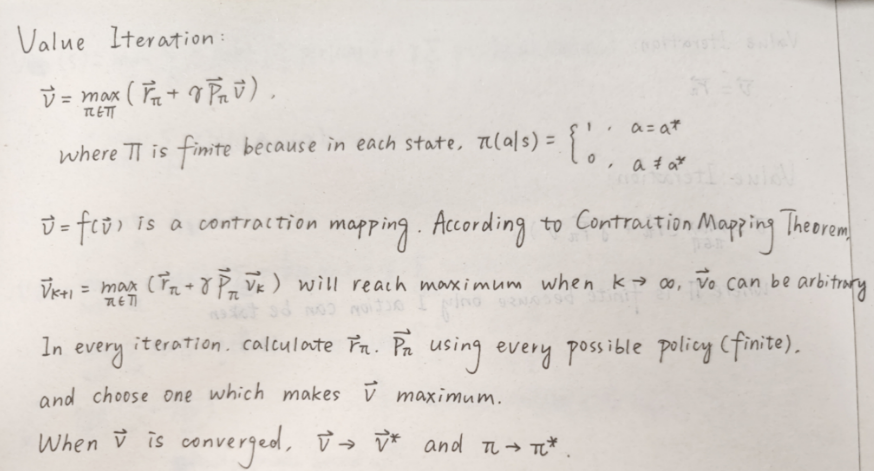 Value Iteration:
v⃗ = max_{π∈Π} ( r⃗_π + γ P⃗_π v⃗ ) .
where Π is finite because in each state, π(a|s) = { 1 , a = a*
0 , a ≠ a*
v⃗ = f(v⃗) is a contraction mapping. According to Contraction Mapping Theorem,
v⃗_{k+1} = max_{π∈Π} ( r⃗_π + γ P⃗_π v⃗_k ) will reach maximum when k → ∞, v⃗_0 can be arbitrary
In every iteration. calculate r⃗_π. P⃗_π using every possible policy (finite).
and choose one which makes v⃗ maximum.
When v⃗ is converged, v⃗ → v⃗* and π → π*.